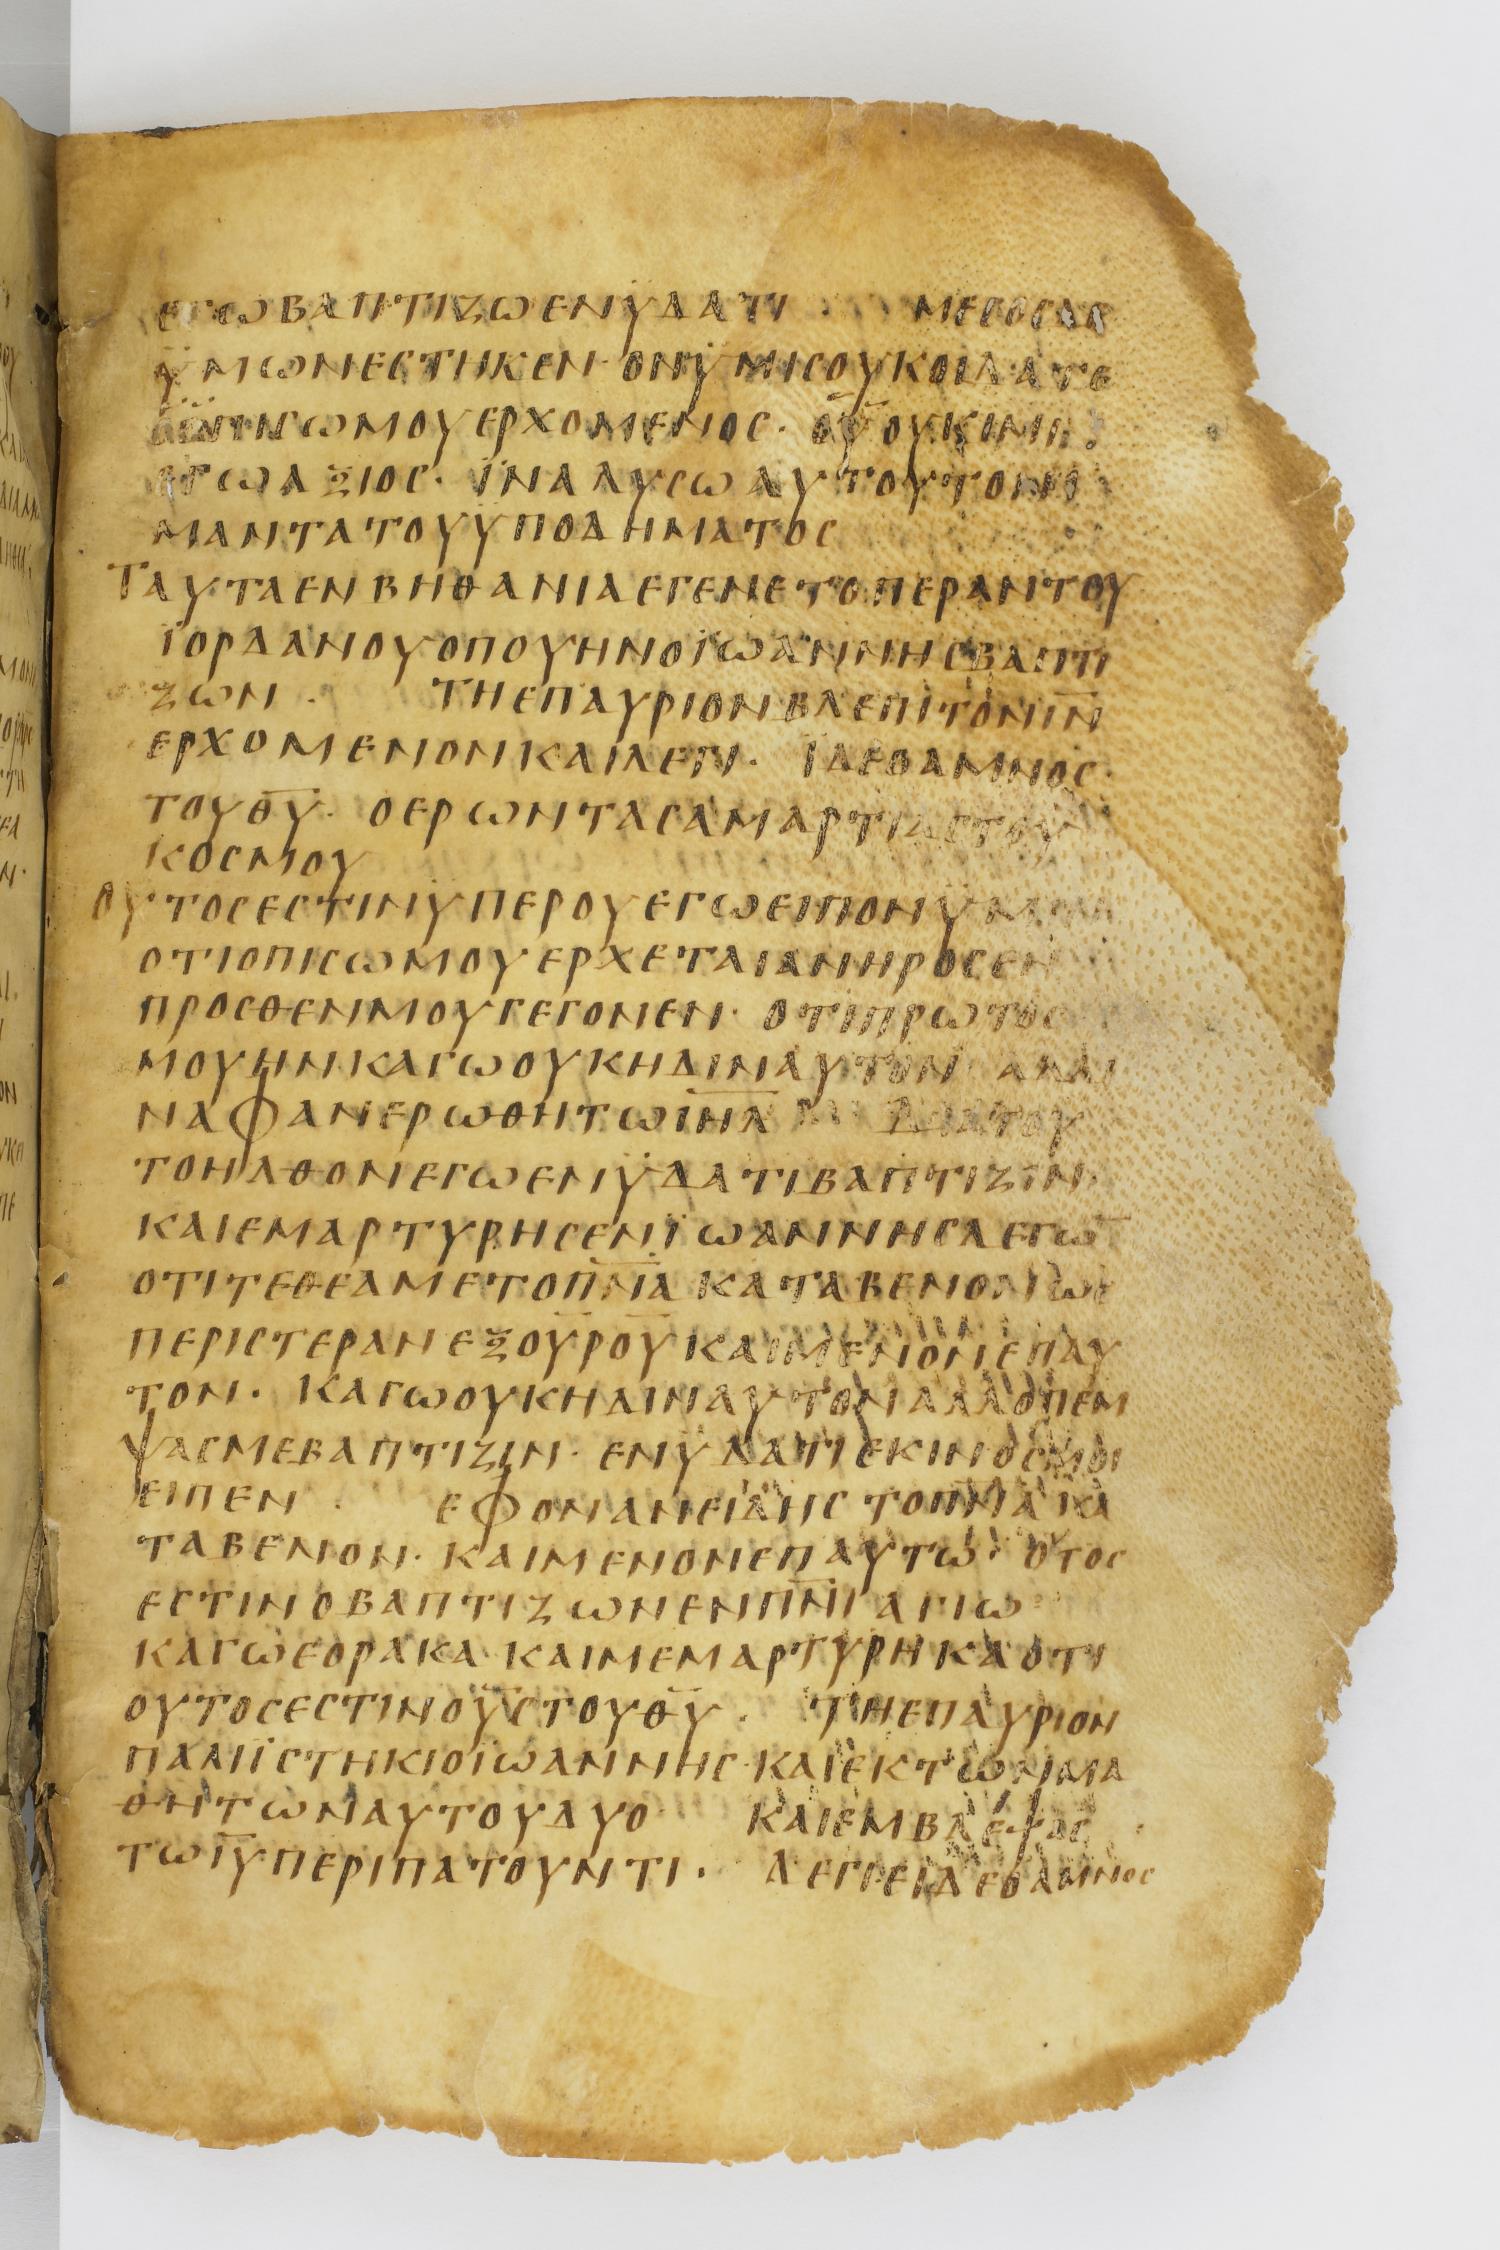 ΕΓΩΒΑΠΤΙΖΩΕΝΫΔΑΤΙ ΜΕΣΟΣΔΕ
ΫΜΩΝΕΣΤΗΚΕΝ· ΟΝΫΜΙΣΟΥΚΟΙΔΑΤΕ
ΩΜΟΥΕΡΧΟΜΕΝΟΣ· ΟΥ̅ΟΥΚΙΜΙ
ΕΓΩΑΞΙΟΣ· ΪΝΑΛΥΣΩΑΥΤΟΥΤΟΝΪ
ΜΑΝΤΑΤΟΥΫΠΟΔΗΜΑΤΟΣ
ΤΑΥΤΑΕΝΒΗΘΑΝΙΑΕΓΕΝΕΤΟΠΕΡΑΝΤΟΥ
ΪΟΡΔΑΝΟΥΟΠΟΥΗΝΟΪΩΑΝΝΗΣΒΑΠΤΙ
ΖΩΝ· ΤΗΕΠΑΥΡΙΟΝΒΛΕΠΙΤΟΝΙ̅Ν̅
ΕΡΧΟΜΕΝΟΝΚΑΙΛΕΓΙ· ΪΔΕΟΑΜΝΟΣ·
ΤΟΥΘ̅Υ̅· ΟΕΡΩΝΤΑΣΑΜΑΡΤΙΑΣΤΟΥ
ΚΟΣΜΟΥ
ΟΥΤΟΣΕΣΤΙΝΫΠΕΡΟΥΕΓΩΕΙΠΟΝΫΜΙΝ
ΟΤΙΟΠΙΣΩΜΟΥΕΡΧΕΤΑΙΑΝΗΡΟΣΕΝ
ΠΡΟΣΘΕΝΜΟΥΓΕΓΟΝΕΝ· ΟΤΙΠΡΩΤΟΣ
ΜΟΥΗΝΚΑΓΩΟΥΚΗΔΙΝΑΥΤΟΝ ΑΛΛΙ
ΝΑΦΑΝΕΡΩΘΗΤΩΙ̅Η̅Λ̅ ΔΙΑΤΟΥ
ΤΟΗΛΘΟΝΕΓΩΕΝΫΔΑΤΙΒΑΠΤΙΖΙΝ·
ΚΑΙΕΜΑΡΤΥΡΗΣΕΝΪΩΑΝΝΗΣΛΕΓΩ̅
ΟΤΙΤΕΘΕΑΜΕΤΟΠ̅Ν̅Α̅ΚΑΤΑΒΕΝΟΝΩΣ
ΠΕΡΙΣΤΕΡΑΝΕΞΟΥ̅ΡΟΥ̅ΚΑΙΜΕΝΟΝΕΠΑΥ
ΤΟΝ· ΚΑΓΩΟΥΚΗΔΙΝΑΥΤΟΝΑΛΛΟΠΕΜ
ΨΑΣΜΕΒΑΠΤΙΖΙΝ· ΕΝΫΔΑΤΙΕΚΙΝΟΣΜΟΙ
ΕΙΠΕΝ · ΕΦΟΝΑΝΕΙΔΗΣΤΟΠ̅Ν̅Α̅ΚΑ
ΤΑΒΕΝΟΝ· ΚΑΙΜΕΝΟΝΕΠΑΥΤΩ· ΟΤΟΣ
ΕΣΤΙΝΟΒΑΠΤΙΖΩΝΕΝΠ̅Ν̅Ι̅ΑΓΙΩ
ΚΑΓΩΕΟΡΑΚΑ ΚΑΙΜΕΜΑΡΤΥΡΗΚΑΟΤΙ
ΟΥΤΟΣΕΣΤΙΝΟΥ̅Σ̅ΤΟΥΘ̅Υ̅· ΤΗΕΠΑΥΡΙΟΝ
ΠΑΛΙΪΣΤΗΚΙΟΪΩΑΝΝΗΣ·ΚΑΙΕΚΤΩΝΜΑ
ΘΗΤΩΝΑΥΤΟΥΔΥΟ ΚΑΙΕΜΒΛΕΨΑΣ
ΤΩΙ̅Υ̅ΠΕΡΙΠΑΤΟΥΝΤΙ· ΛΕΓΙΕΙΔΕΟΑΜΝΟΣ